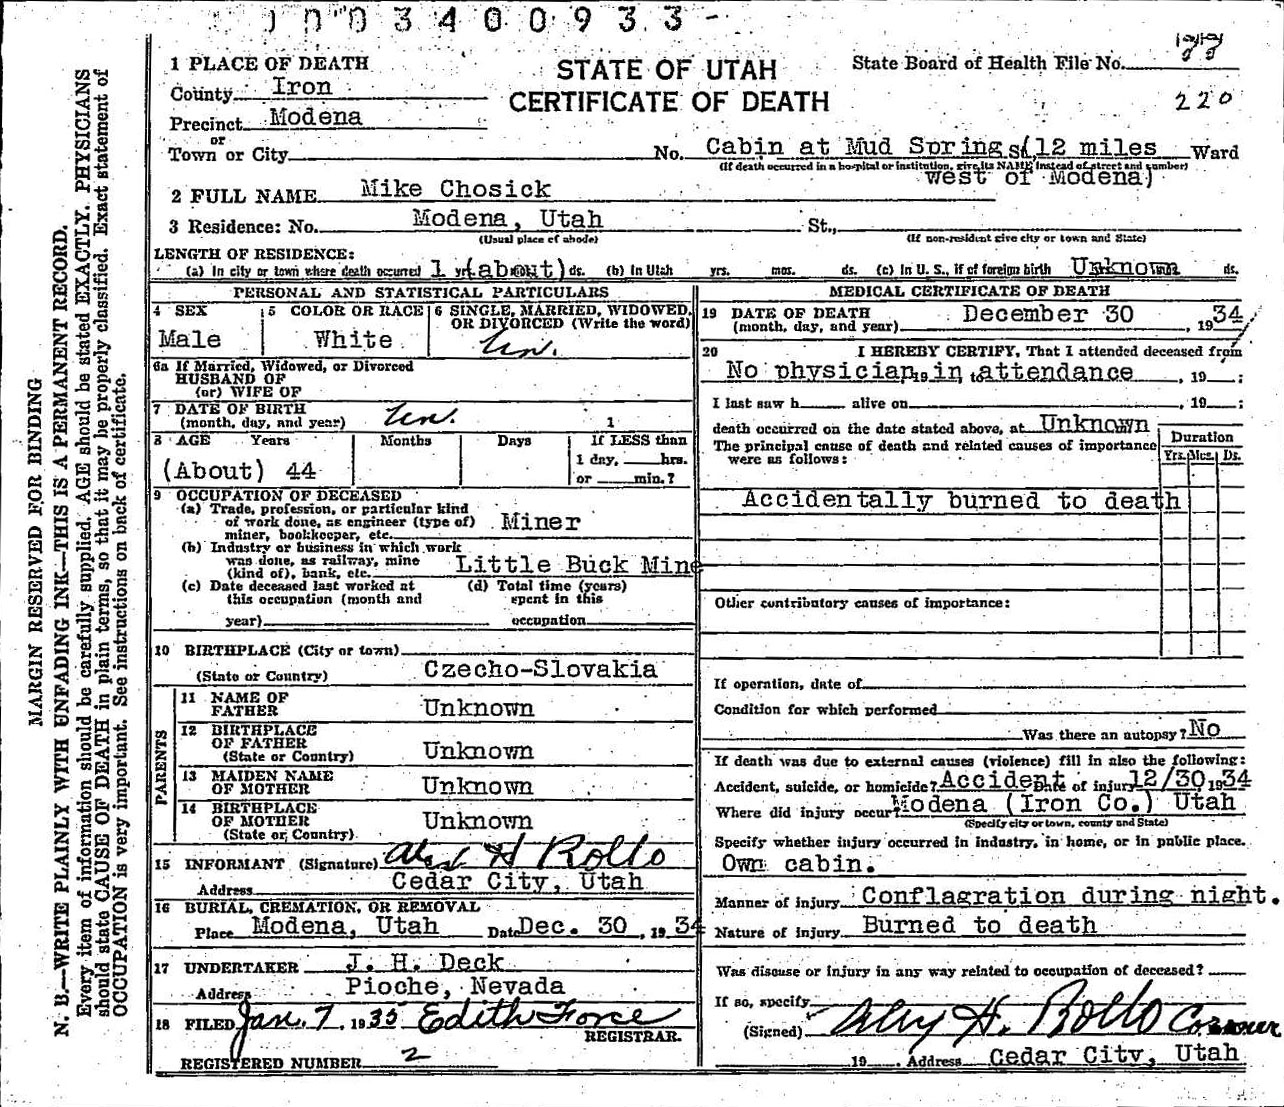 0003400933-
1 PLACE OF DEATH
County Iron
Precinct Modena
or
Town or City
STATE OF UTAH
CERTIFICATE OF DEATH
State Board of Health File No.
220
No. Cabin at Mud Springs (12 miles Ward
(If death occurred in a hospital or institution, give its NAME instead of street and number)
west of Modena)
2 FULL NAME Mike Chosick
3 Residence: No. Modena, Utah St.,
(Usual place of abode) (If non-resident give city or town and State)
LENGTH OF RESIDENCE:
(a) In city or town where death occurred 1 yr (about) ds. (b) In Utah yrs. mos. ds. (c) In U. S., if of foreign birth Unknown ds.
PERSONAL AND STATISTICAL PARTICULARS
4 SEX 5 COLOR OR RACE 6 SINGLE, MARRIED, WIDOWED, OR DIVORCED (Write the word)
Male White Un.
6a If Married, Widowed, or Divorced
HUSBAND OF
(or) WIFE OF
7 DATE OF BIRTH
(month, day, and year) Un. 1
8 AGE Years Months Days If LESS than
1 day, hrs.
(About) 44 or min.?
9 OCCUPATION OF DECEASED
(a) Trade, profession, or particular kind
of work done, as engineer (type of)
miner, bookkeeper, etc. Miner
(b) Industry or business in which work
was done, as railway, mine
(kind of), bank, etc. Little Buck Mine
(c) Date deceased last worked at (d) Total time (years)
this occupation (month and spent in this
year) occupation
10 BIRTHPLACE (City or town)
(State or Country) Czecho-Slovakia
PARENTS
11 NAME OF
FATHER Unknown
12 BIRTHPLACE
OF FATHER
(State or Country) Unknown
13 MAIDEN NAME
OF MOTHER Unknown
14 BIRTHPLACE
OF MOTHER
(State or Country) Unknown
15 INFORMANT (Signature) Alex H Rollo
Address Cedar City, Utah
16 BURIAL, CREMATION, OR REMOVAL
Place Modena, Utah Date Dec. 30, 1934
17 UNDERTAKER J. H. Deck
Address Pioche, Nevada
18 FILED Jan. 7, 1935 Edith Force
REGISTRAR.
REGISTERED NUMBER 2
MEDICAL CERTIFICATE OF DEATH
19 DATE OF DEATH
(month, day, and year) December 30, 1934
20 I HEREBY CERTIFY, That I attended deceased from
No physician 19 in, to attendance, 19 ;
I last saw h alive on , 19 ;
death occurred on the date stated above, at Unknown
The principal cause of death and related causes of importance
were as follows:
Duration
Yrs. Mos. Ds.
Accidentally burned to death
Other contributory causes of importance:
If operation, date of
Condition for which performed
Was there an autopsy? No
If death was due to external causes (violence) fill in also the following:
Accident, suicide, or homicide? Accident Date of injury 12/30 1934
Where did injury occur? Modena (Iron Co.) Utah
(Specify city or town, county and State)
Specify whether injury occurred in industry, in home, or in public place.
Own cabin.
Manner of injury Conflagration during night.
Nature of injury Burned to death
Was disease or injury in any way related to occupation of deceased?
If so, specify
(Signed) Alex H. Rollo Coroner
19 , Address Cedar City, Utah
MARGIN RESERVED FOR BINDING
N. B.—WRITE PLAINLY WITH UNFADING INK—THIS IS A PERMANENT RECORD.
Every item of information should be carefully supplied. AGE should be stated EXACTLY. PHYSICIANS
should state CAUSE OF DEATH in plain terms, so that it may be properly classified. Exact statement of
OCCUPATION is very important. See instructions on back of certificate.